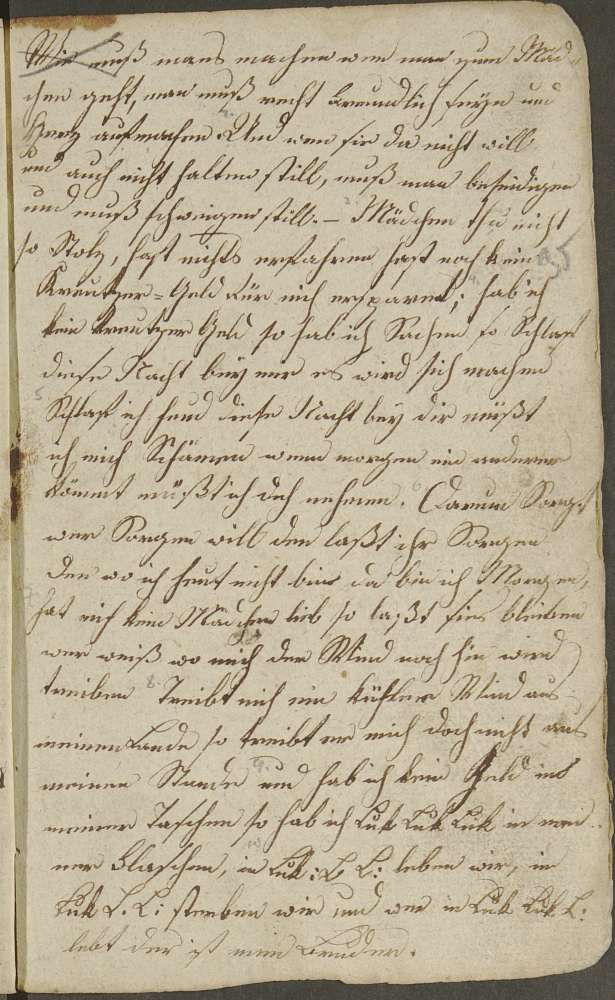 Wie muß mans machen wen man zum Mäd=
chen geht, man muß recht freundlich seyn und
Herz aufmachen. Und wen sie da nicht will
und auch nicht halten still, muß man
und muß schweigen still. – Mädchen thu nicht
so Stolz, hast nichts erfahren hast noch kein
Kreutzer=Geld für mich ersparet; hab ich
kein Kreutzer Geld so hab ich Sachen so Schlaf
diese Nacht bey mir es wird sich machen
Schlaf ich heut diese Nacht bey dir müßt
ich mich Schämen wenn morgen ein anderer
kömmt müßt ich dich nehmen. Darum Sorget
wer Sorgen will den laßt ihr Sorgen
Den wo ich heut nicht bin da bin ich Morgen,
hat mich kein Mädchen lieb so laßt sies bleiben
wer weiß wo mich der Wind noch hin wird
treiben 8. Treibt mich ein kühler Wind aus
meinem Lande so treibt er mich doch nicht aus
meinem Stande 9. und hab ich kein Geld in
meiner Taschen so hab ich Luk Luk Luk in mei
ner Flaschen, in Luk: L L: leben wir, in
Luk L. L: sterben wir und wer in Luk Luk L:
lebt der ist mein Bruder.